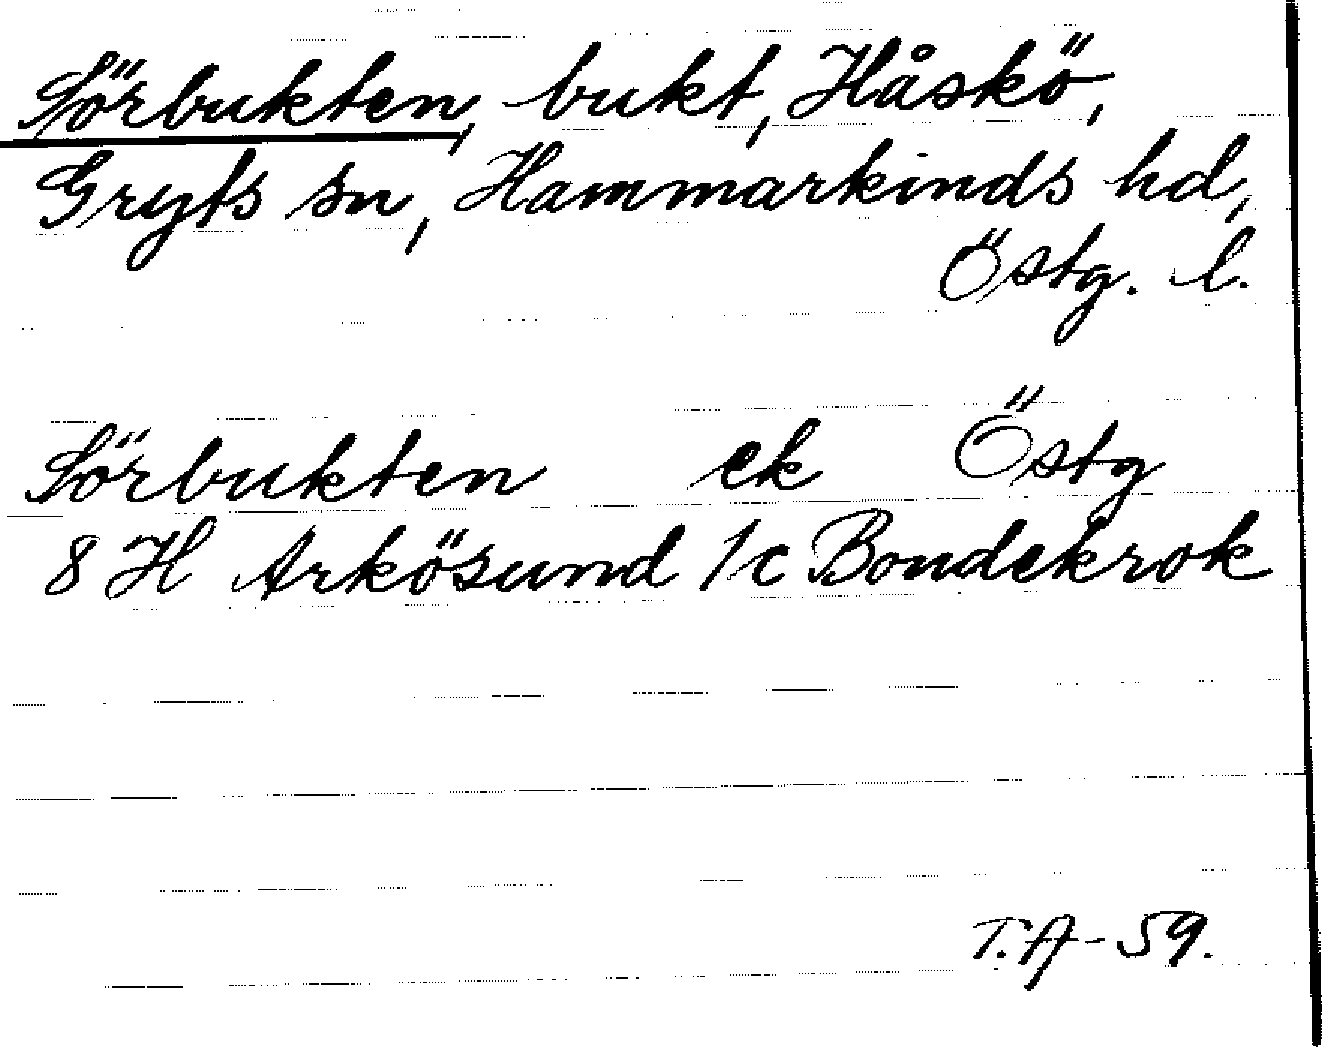 Sörbukten, bukt, Håskö,
Gryts sn, Hammarkinds hd,
Östg. l.
Sörbukten ek Östg
8 H Arkösund 1c Bondekrok
T.A-59.